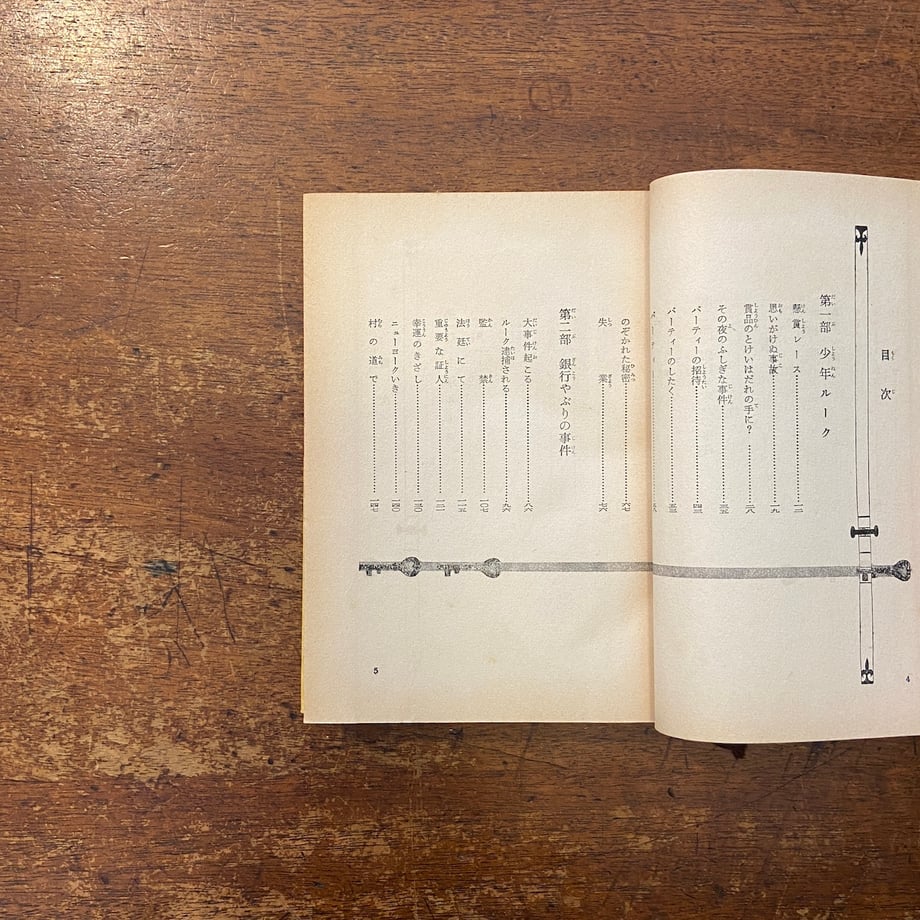 目次
第一部 少年ルーク
懸賞レース……一二
思いがけぬ事故……一九
賞品のとけいはだれの手に?……二八
その夜のふしぎな事件……三五
パーティーの招待……四三
パーティーのしたく……五三
4
のぞかれた秘密……六七
失業……七六
第二部 銀行やぶりの事件
大事件起こる……八六
ルーク逮捕される……九六
監禁……一〇七
法廷にて……一一五
重要な証人……一二一
幸運のきざし……一三〇
ニューヨークいき……一四〇
村の道で……一四七
5